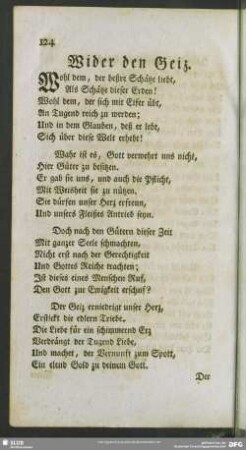 124
Wider den Geiz.
Wohl dem, der beßre Schätze liebt,
Als Schätze dieser Erden!
Wohl dem, der sich mit Eifer übt,
An Tugend reich zu werden;
Und in dem Glauben, deß er lebt,
Sich über diese Welt erhebt!
Wahr ist es, Gott verwehrt uns nicht,
Hier Güter zu besitzen.
Er gab sie uns, und auch die Pflicht,
Mit Weisheit sie zu nützen.
Sie dürfen unser Herz erfreun,
Und unsers Fleißes Antrieb seyn.
Doch nach den Gütern dieser Zeit
Mit ganzer Seele schmachten,
Nicht erst nach der Gerechtigkeit
Und Gottes Reiche trachten;
Ist dieses eines Menschen Ruf,
Den Gott zur Ewigkeit erschuf?
Der Geiz erniedrigt unser Herz,
Erstickt die edlern Triebe.
Die Liebe für ein schimmernd Erz
Verdrängt der Tugend Liebe,
Und machet, der Vernunft zum Spott,
Ein elend Gold zu deinem Gott.
Der
SLUB
DFG